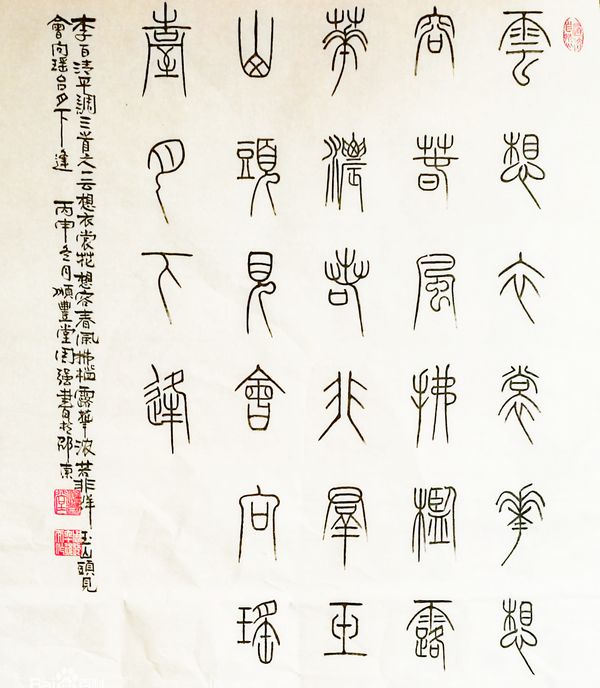 雲想衣裳華想
容春風拂檻露
華濃若非羣玉
山頭見會向瑤
臺月下逢
李白清平調三首之一云想衣裳花想容春風拂槛露華浓若非群玉山頭見
會向瑶台月下逢 丙申冬月順豐堂閆强書於邵東